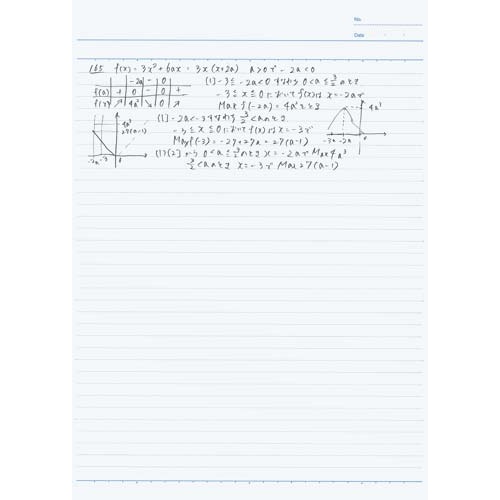 No.
Date
165 f'(x) = 3x² + 6ax = 3x(x+2a) a>0で -2a<0
-2a - 0
f'(x) + 0 - 0 +
f(x) ↗ 4a³ ↘ 0 ↗
[1] -3≦-2a<0 すなわち 0<a≦3/2のとき
-3≦x≦0において f(x)は x=-2aで
Max f(-2a)=4a³をとる
[2] -2a<-3すなわち 3/2<aのとき
-3≦x≦0において f(x)は x=-3で
Max f(-3)=-27+27a=27(a-1)
[1][2]から 0<a≦3/2のとき x=-2aで Max 4a³
3/2<aのとき x=-3で Max 27(a-1)
4a³
27(a-1)
-2a -3 0
4a³
-3a -2a 0